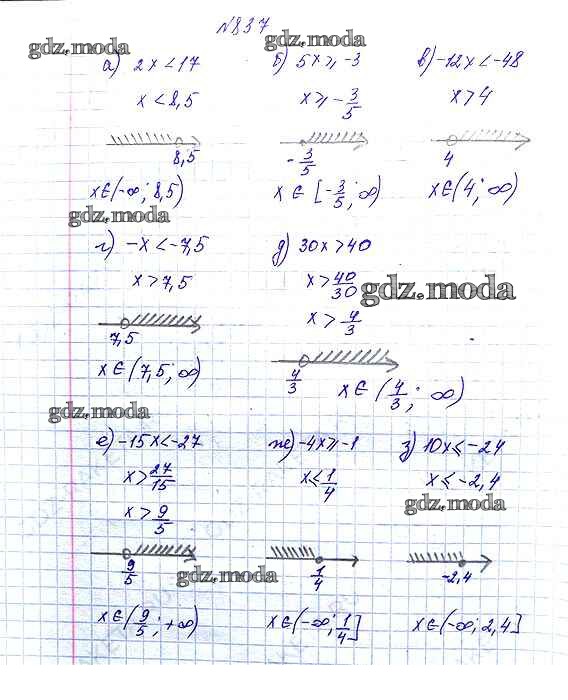 №837
gdz.moda
gdz.moda
а) 2x<17
x<8,5
8,5
x∈(-∞; 8,5)
gdz.moda
б) 5x⩾-3
x⩾-3/5
-3/5
x∈[-3/5; ∞)
в) -12x<-48
x>4
4
x∈(4; ∞)
г) -x<-7,5
x>7,5
7,5
x∈(7,5; ∞)
д) 30x>40
x>40/30
gdz.moda
x>4/3
4/3
x∈(4/3; ∞)
gdz.moda
е) -15x<-27
x>27/15
x>9/5
9/5
gdz.moda
x∈(9/5; +∞)
ж) -4x⩾-1
x⩽1/4
1/4
x∈(-∞; 1/4]
з) 10x⩽-24
x⩽-2,4
gdz.moda
-2,4
x∈(-∞; 2,4]